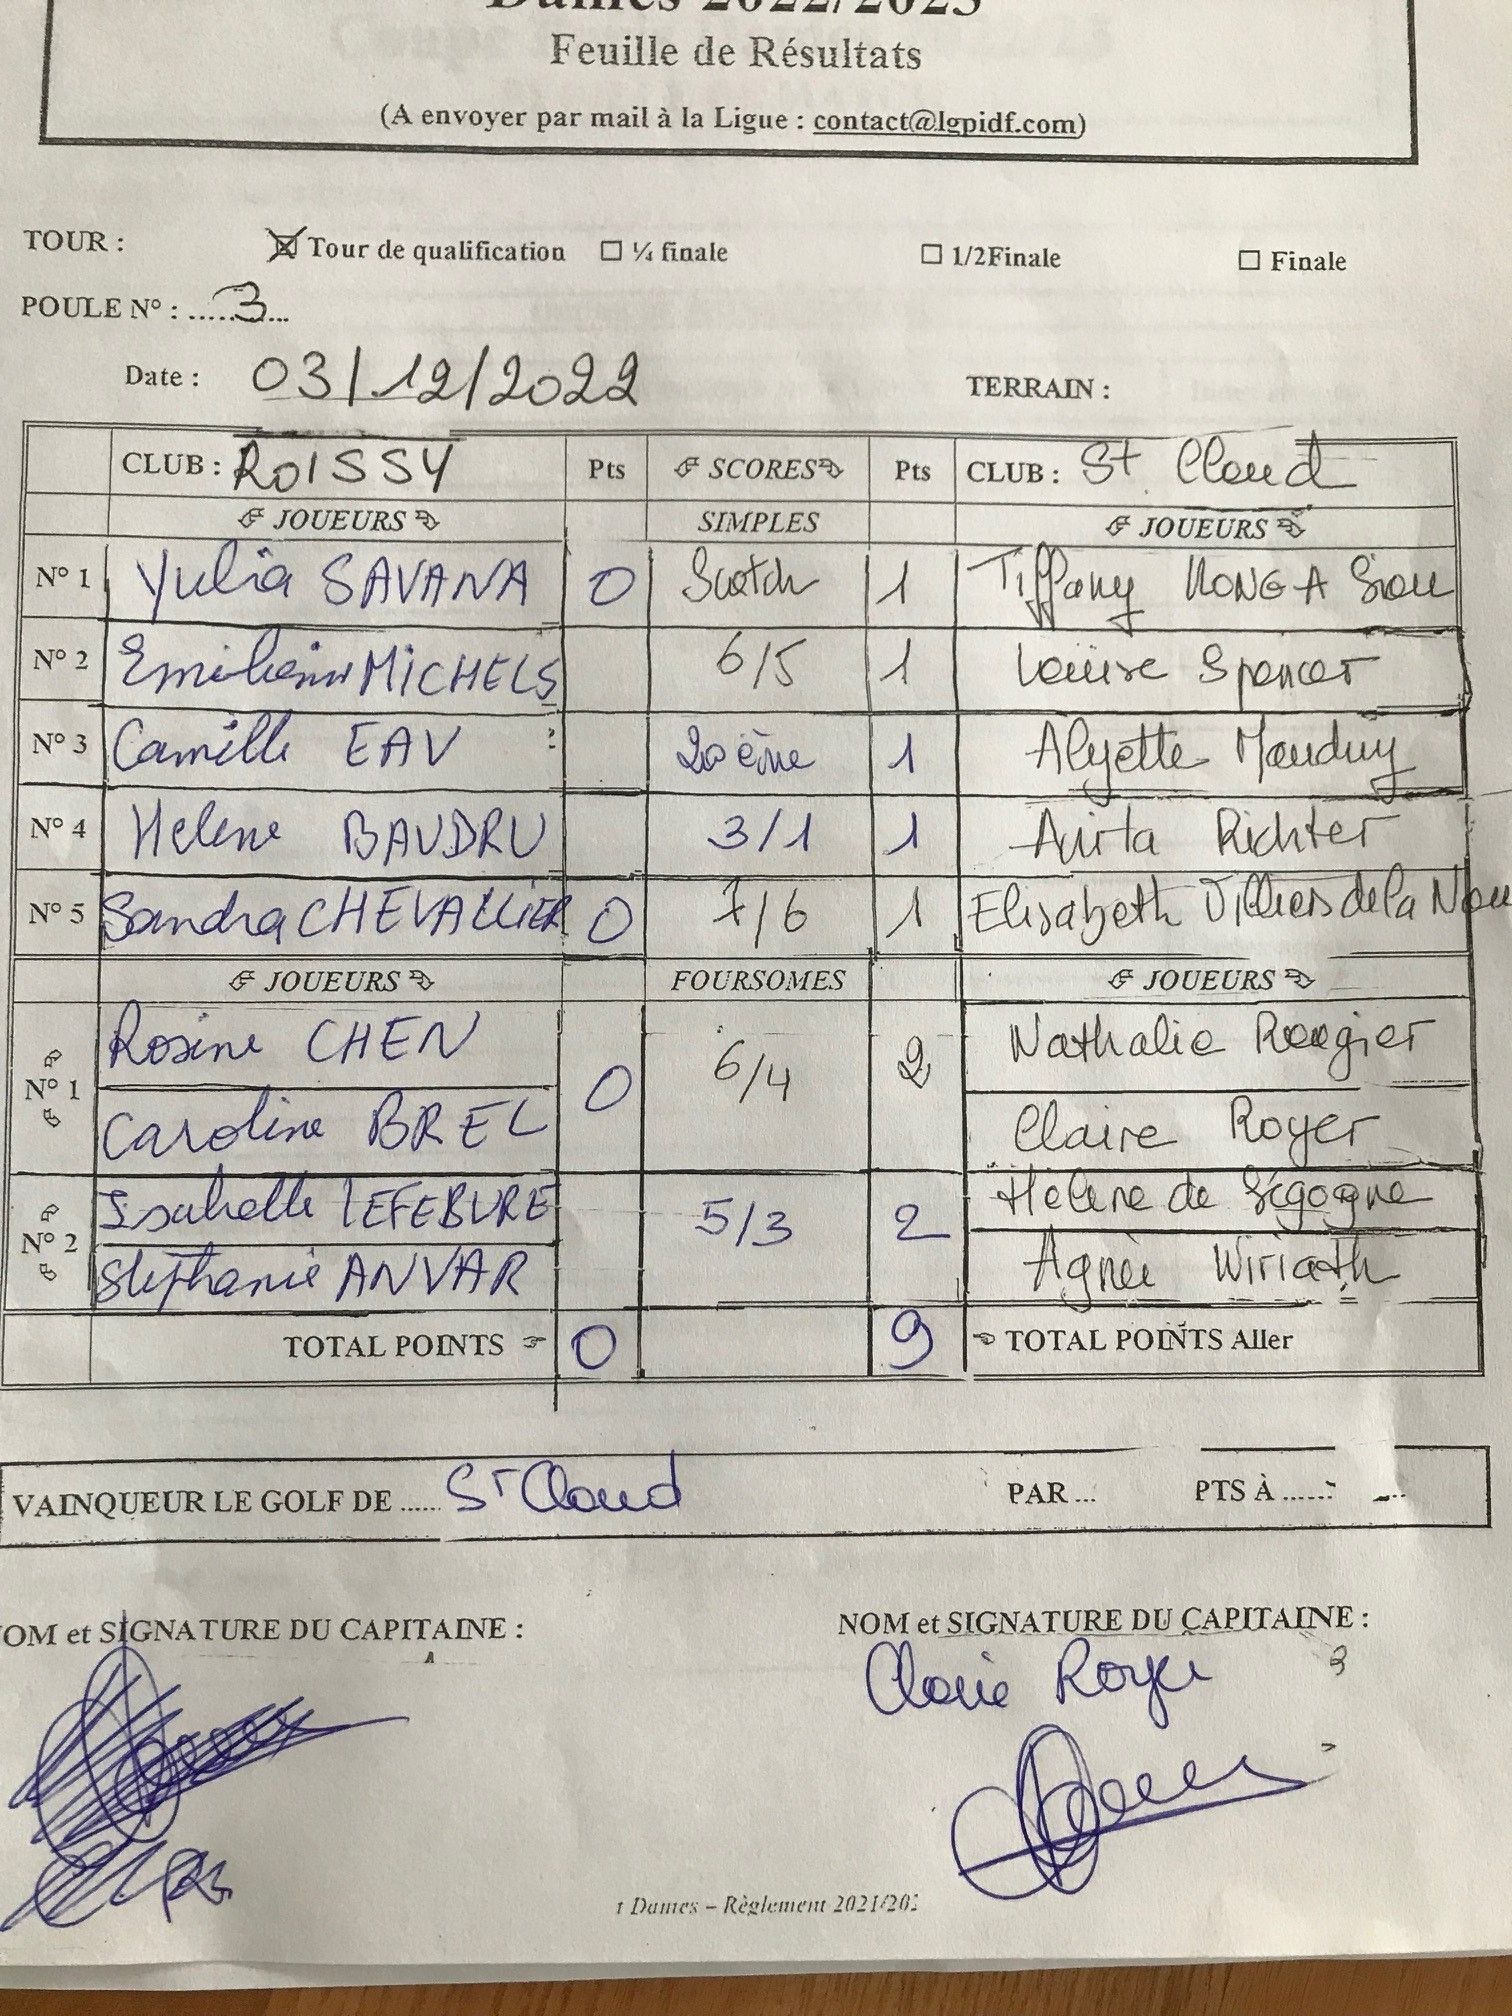 Dames 2022/2023
Feuille de Résultats
(A envoyer par mail à la Ligue : contact@lgpidf.com)
TOUR : Tour de qualification ¼ finale 1/2Finale Finale
POULE N° : .....3...
Date : 03/12/2022 TERRAIN :
CLUB : ROISSY Pts SCORES Pts CLUB : St Cloud
JOUEURS SIMPLES JOUEURS
N° 1 Yulia SAVANA 0 Scotch 1 Tiffany
N° 2 MICHELS 6/5 1 Louise Spencer
N° 3 Camille EAV 20 ème 1 Alyette Mauduy
N° 4 Helene BAUDRU 3/1 1 Anita Richter
N° 5 Sandra CHEVALLIER 0 7/6 1 Elisabeth Villiers de la Nou
JOUEURS FOURSOMES JOUEURS
Rosine CHEN Nathalie Rougier
N° 1 0 6/4 2
Caroline BREL Claire Royer
Isabelle LEFEBURE Hélène de Sigogne
N° 2 5/3 2
Stephanie ANVAR Agnès Wiriath
TOTAL POINTS 0 9 TOTAL POINTS Aller
VAINQUEUR LE GOLF DE ...... St Cloud PAR ... PTS À ......
NOM et SIGNATURE DU CAPITAINE : NOM et SIGNATURE DU CAPITAINE :
Claire Royer
Dames – Règlement 2021/202